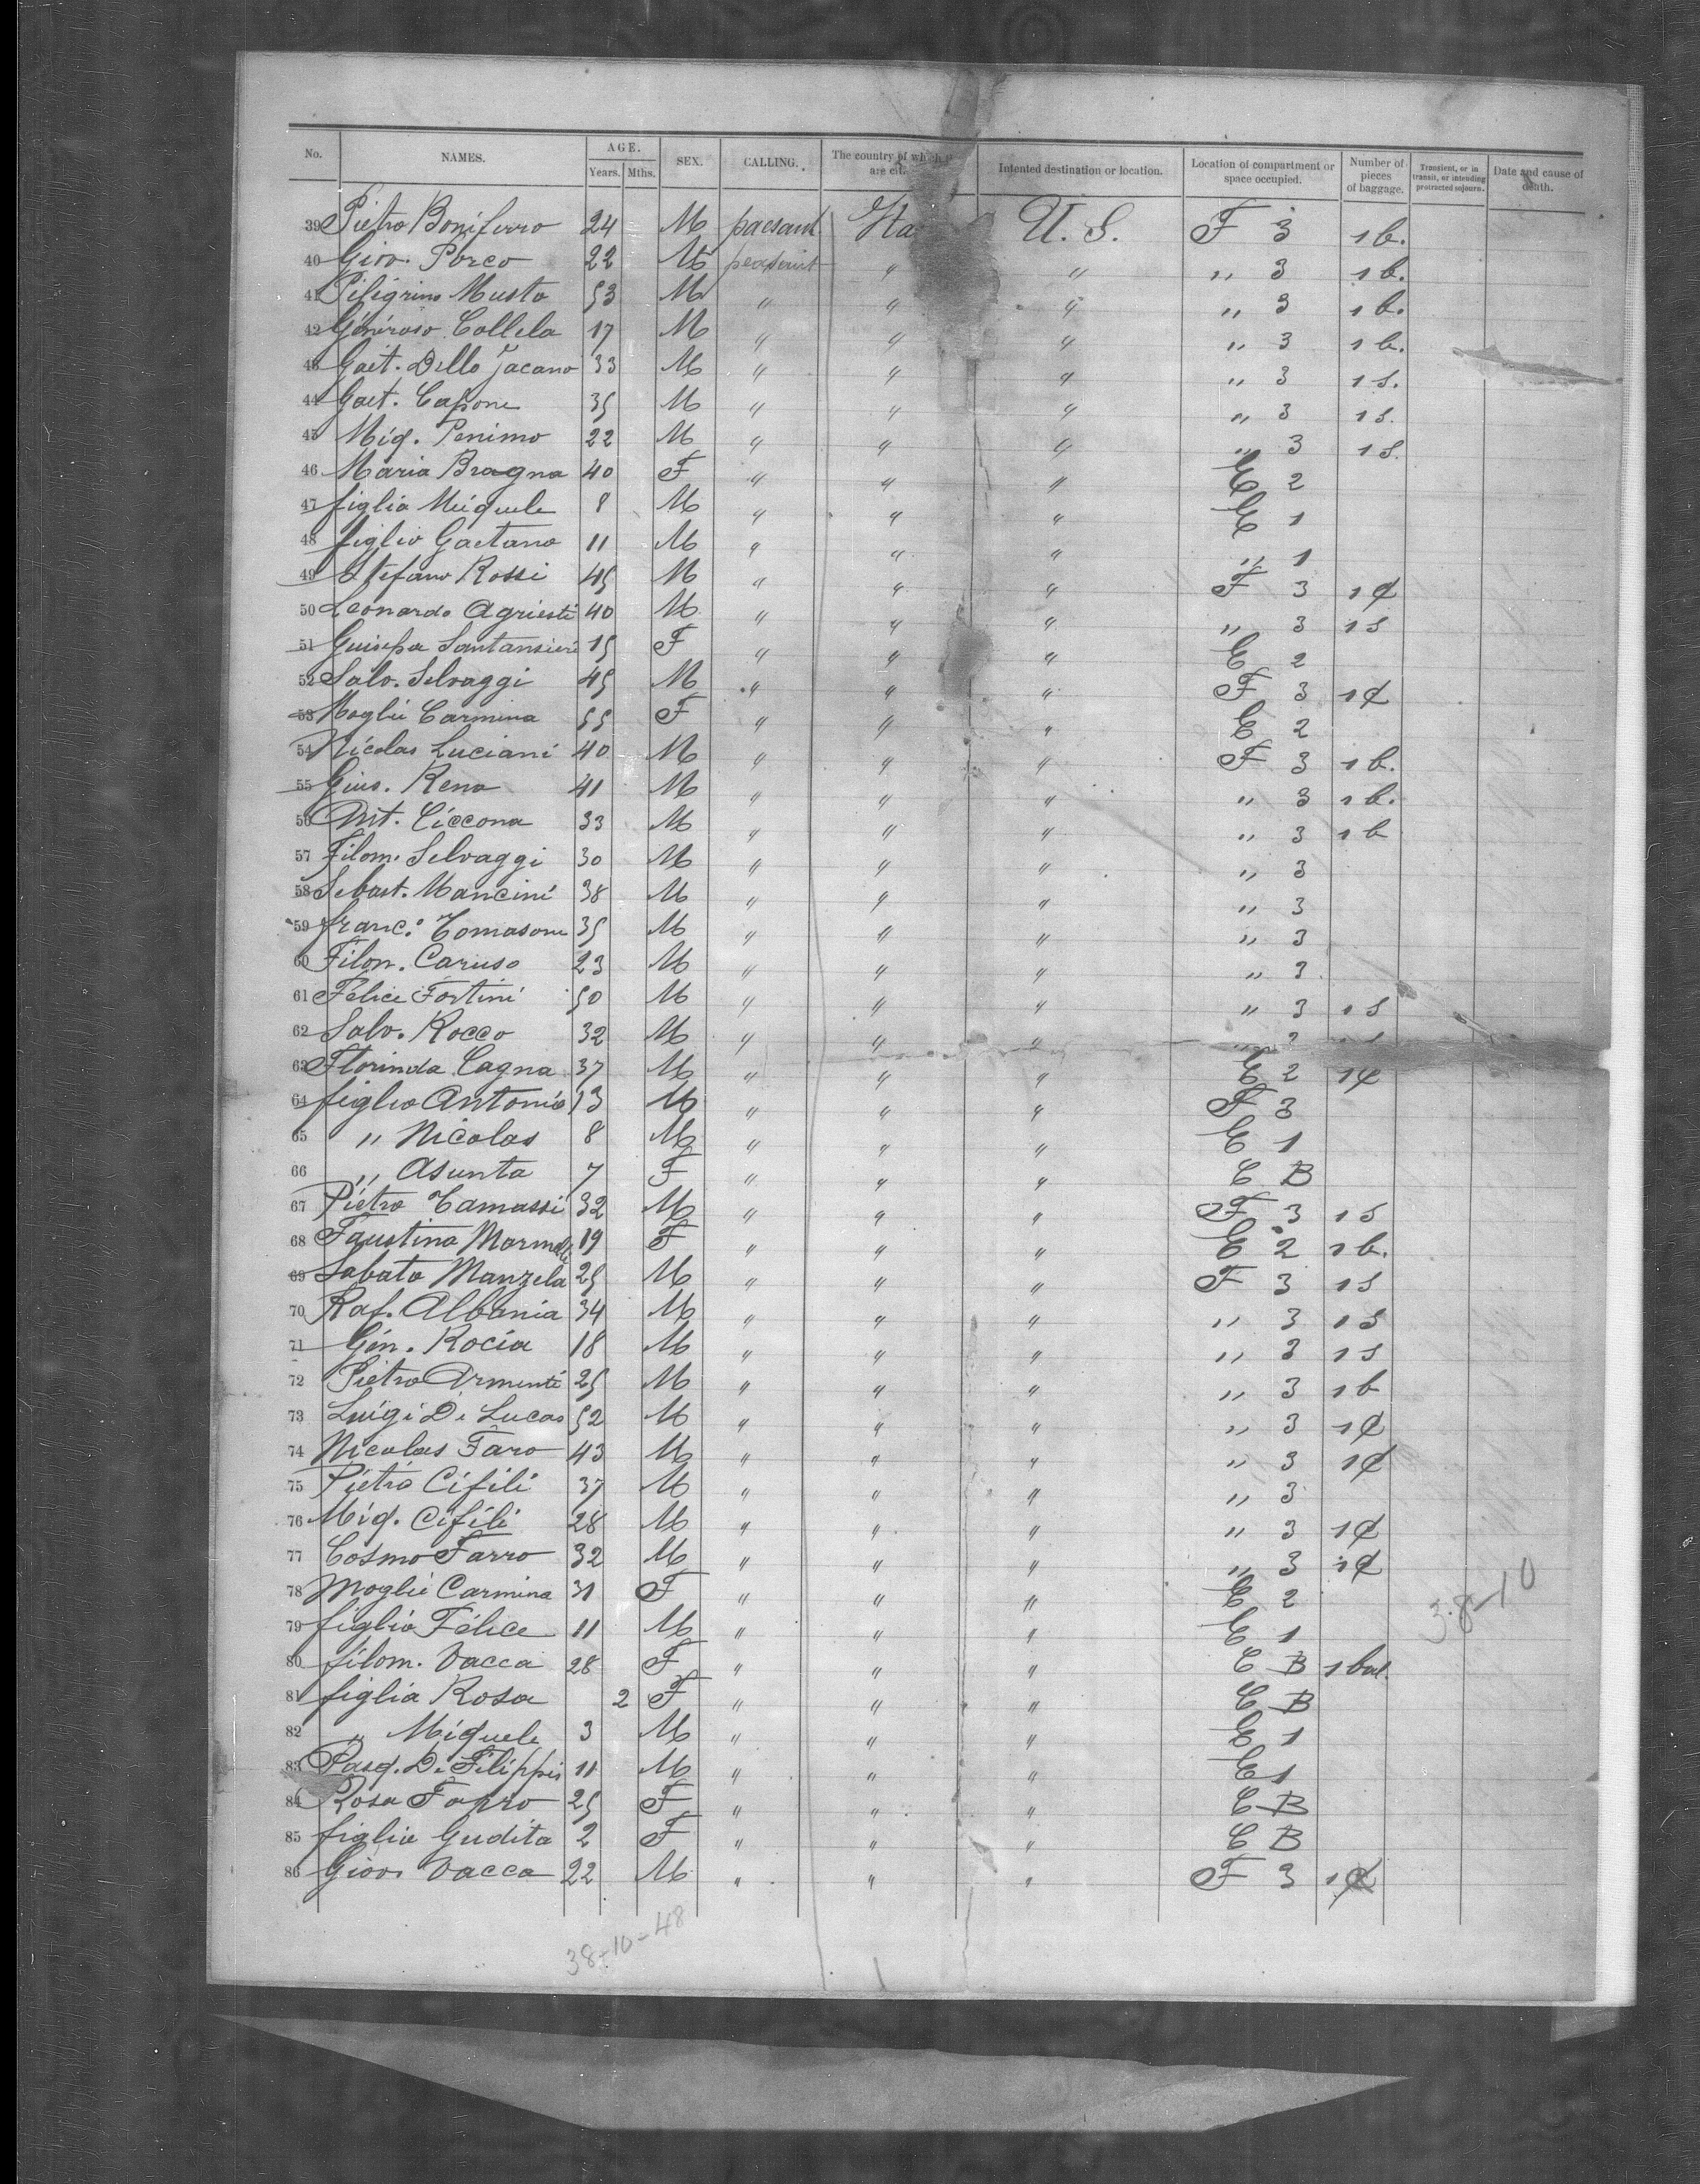 No. NAMES. AGE. Years. Mths. SEX. CALLING. The country of which are Intented destination or location. Location of compartment or space occupied. Number of pieces of baggage. Transient, or in transit, or intending protracted sojourn. Date and cause of death.
39 Pietro Boniferro 24 M paesant Ita U. S. F 3 1 b.
40 Giov. Porco 22 M peasant " " " 3 1 b.
41 Piligrino Musto 53 M " " " " 3 1 b.
42 Generoso Collela 17 M " " " " 3 1 b.
43 Gaet. Dello Jacano 33 M " " " " 3 1 S.
44 Gaet. Capone 35 M " " " " 3 1 S.
45 Miq. Penimo 22 M " " " " 3 1 S.
46 Maria Bragna 40 F " " " E 2
47 figlio Miquele 8 M " " " E 1
48 figlio Gaetano 11 M " " " " 1
49 Stefano Rossi 45 M " " " F 3 1 ₵
50 Leonardo Agriesti 40 M " " " " 3 1 S
51 Guisepa Santansieri 15 F " " " E 2
52 Salv. Selvaggi 45 M " " " F 3 1 ₵
53 Moglie Carmina 55 F " " " E 2
54 Nicolas Luciani 40 M " " " F 3 1 b.
55 Gius. Rena 41 M " " " " 3 1 b.
56 Ant. Ciccona 33 M " " " " 3 1 b
57 Filom. Selvaggi 30 M " " " " 3
58 Sebast. Mancini 38 M " " " " 3
59 franc.º Tomasone 35 M " " " " 3
60 Filon. Caruso 23 M " " " " 3
61 Felice Fortini 50 M " " " " 3 1 S
62 Salv. Rocco 32 M " " " " 3
63 Florinda Cagna 37 M " " " E 2 1 ₵
64 figlio Antonio 13 M " " " F 3
65 " Nicolas 8 M " " " E 1
66 " Asunta 7 F " " " E B
67 Pietro Tamassi 32 M " " " F 3 1 S
68 Faustina 19 F " " " E 2 1 b.
69 Sabato Manzela 25 M " " " F 3 1 S
70 Raf. Albania 34 M " " " " 3 1 S
71 Gen. Rocia 18 M " " " " 3 1 S
72 Pietro Armenti 25 M " " " " 3 1 b
73 Luigi Di Lucas 52 M " " " " 3 1 ₵
74 Nicolas Faro 43 M " " " " 3 1 ₵
75 Pietro Cifili 37 M " " " " 3
76 Miq. Cifili 28 M " " " " 3 1 ₵
77 Cosmo Farro 32 M " " " " 3 1 ₵
78 Moglie Carmina 31 F " " " E 2
79 figlio Felice 11 M " " " E 1
80 filom. Vacca 28 F " " " E B 1 bul.
81 figlia Rosa 2 F " " " E B
82 " Miquele 3 M " " " E 1
83 Pasq. Di Filippis 11 M " " " E 1
84 Rosa 25 F " " " E B
85 figlia Gudita 2 F " " " E B
86 Giov. Vacca 22 M " " " F 3 1 ₵
38-10
38-10-48